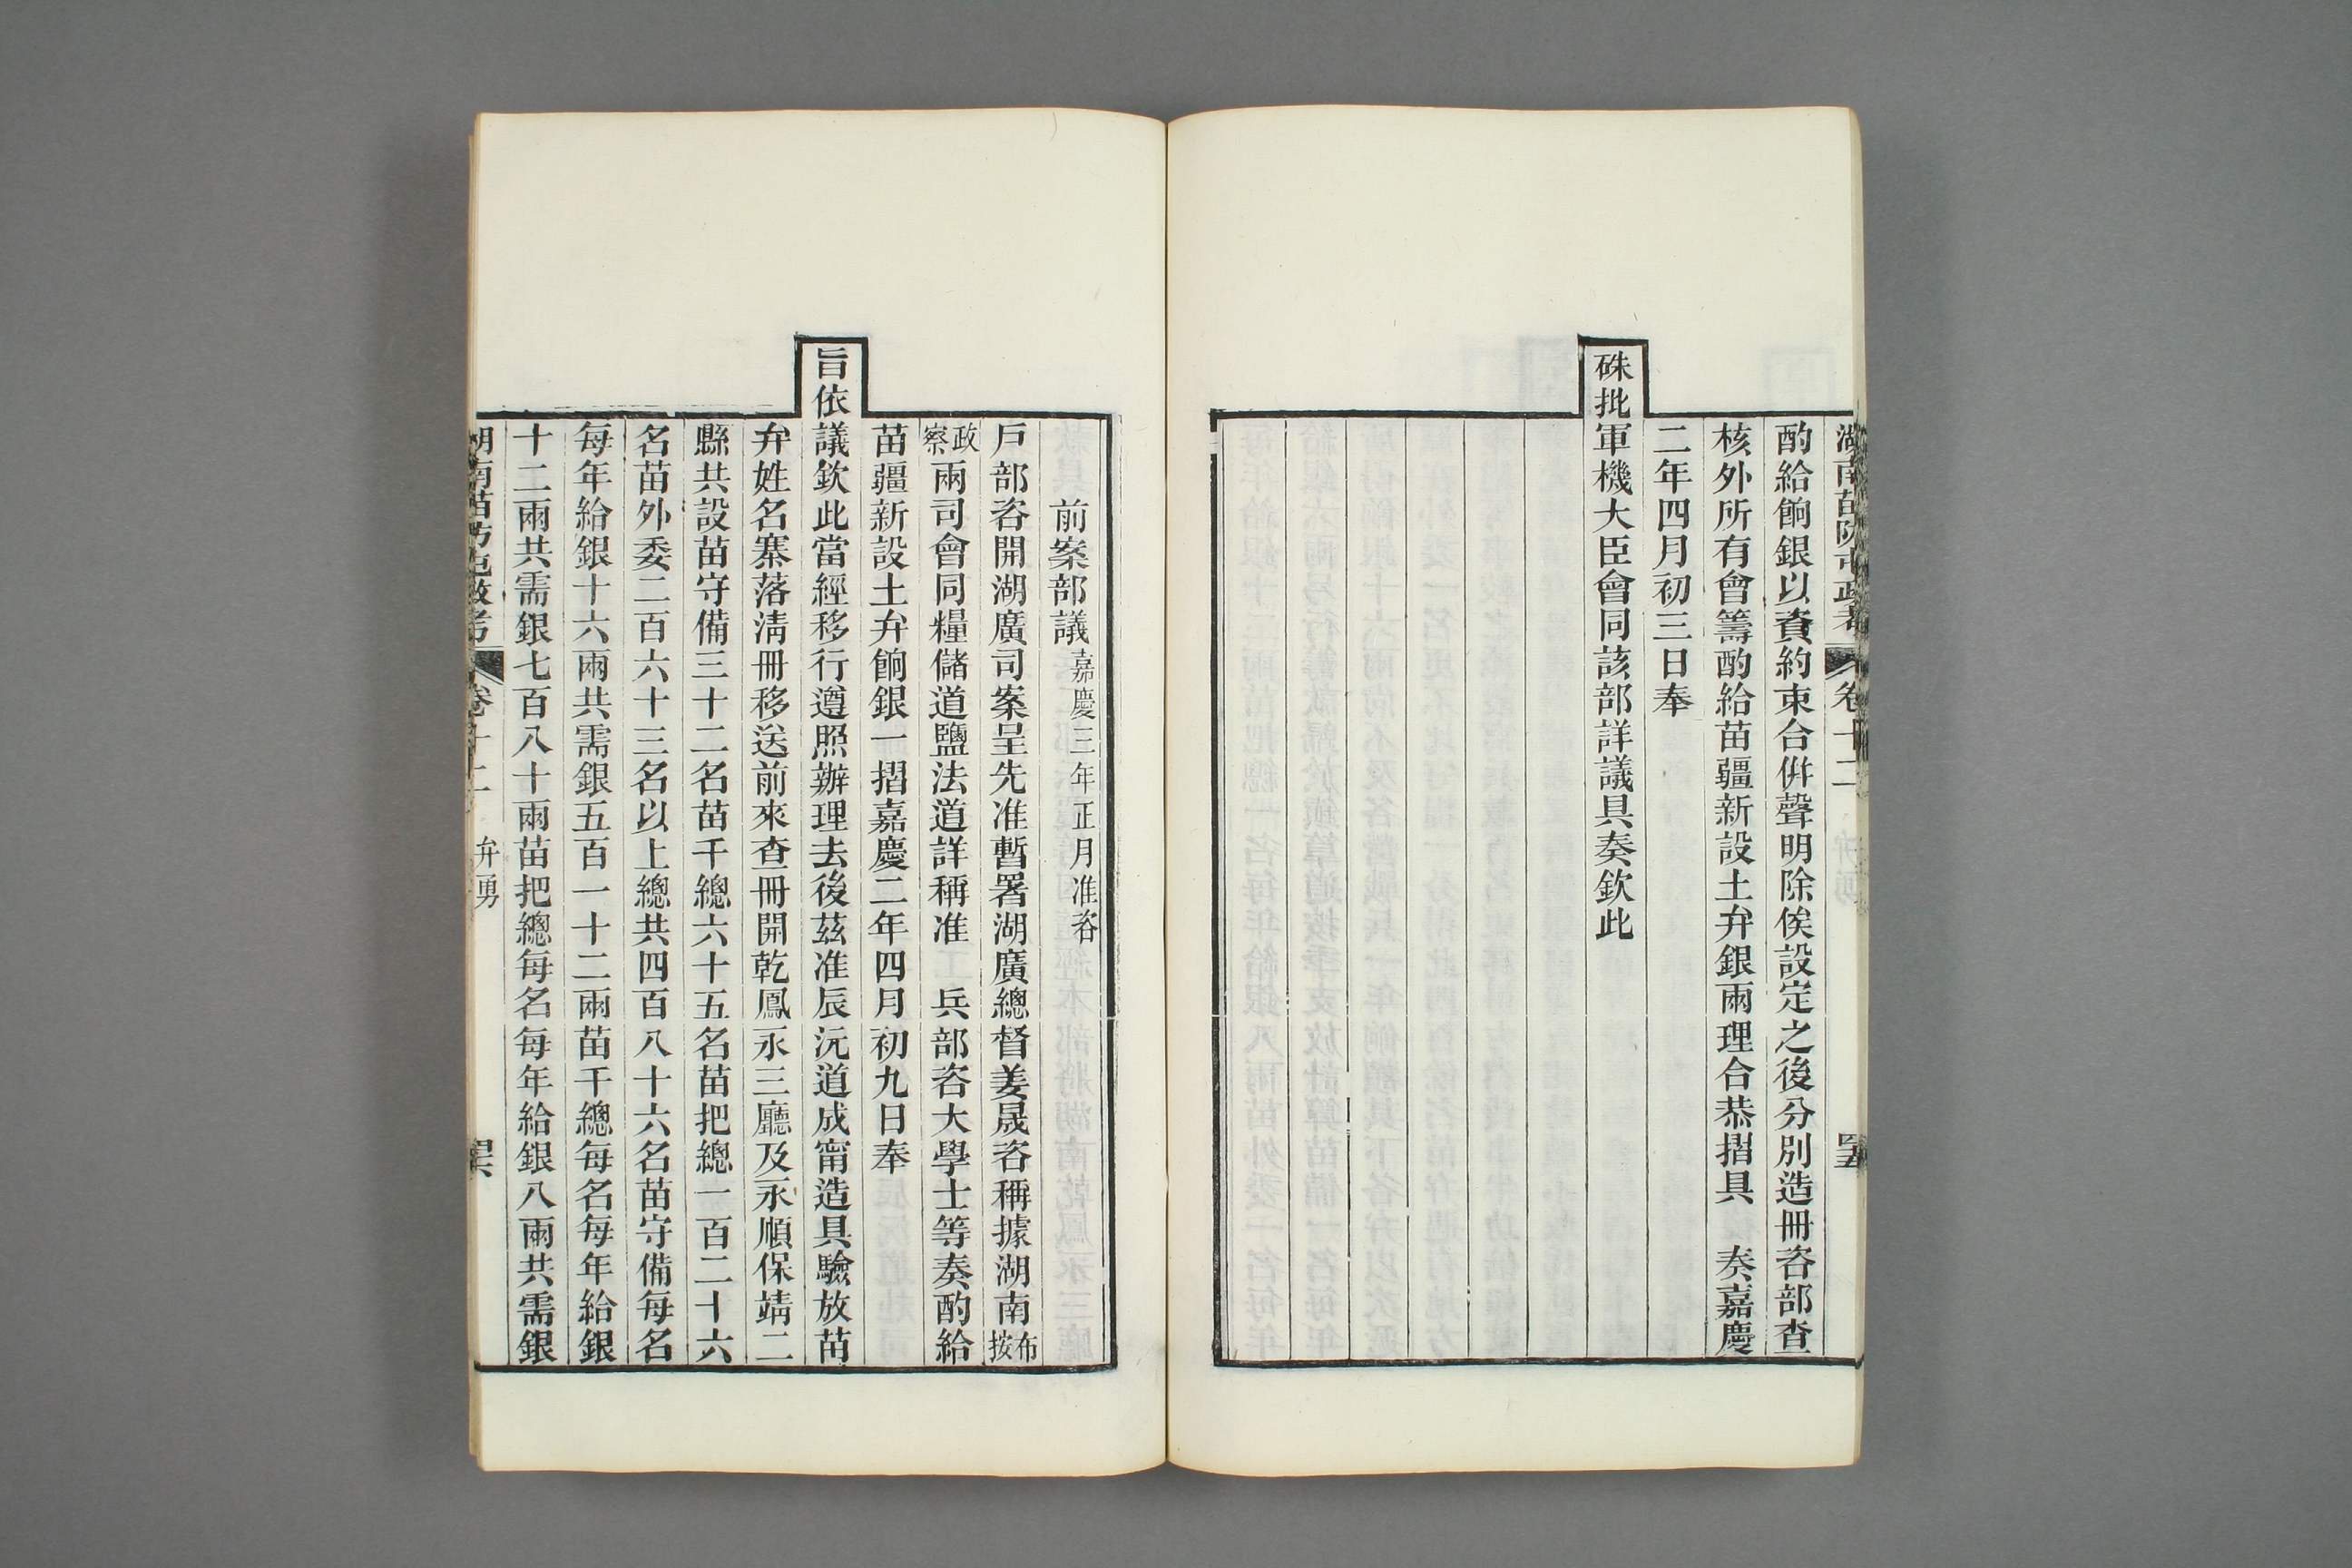 湖南苗防屯政考 卷十二 四十五
酌給餉銀以資約束合併聲明除俟設定之後分別造冊咨部查
核外所有會籌酌給苗疆新設土弁銀兩理合恭摺具 奏嘉慶
二年四月初三日奉
硃批軍機大臣會同該部詳議具奏欽此
前案部議嘉慶三年正月准咨
戶部咨開湖廣司案呈先准暫署湖廣總督姜晟咨稱據湖南布按
政察兩司會同糧儲道鹽法道詳稱准 兵部咨大學士等奏酌給
苗疆新設土弁餉銀一摺嘉慶二年四月初九日奉
旨依議欽此當經移行遵照辦理去後茲准辰沅道成甯造具驗放苗
弁姓名寨落清冊移送前來查冊開乾鳳永三廳及永順保靖二
縣共設苗守備三十二名苗千總六十五名苗把總一百二十六
名苗外委二百六十三名以上總共四百八十六名苗守備每名
每年給銀十六兩共需銀五百一十二兩苗千總每名每年給銀
十二兩共需銀七百八十兩苗把總每名每年給銀八兩共需銀
湖南苗防屯政考 卷十二 弁勇 四十六